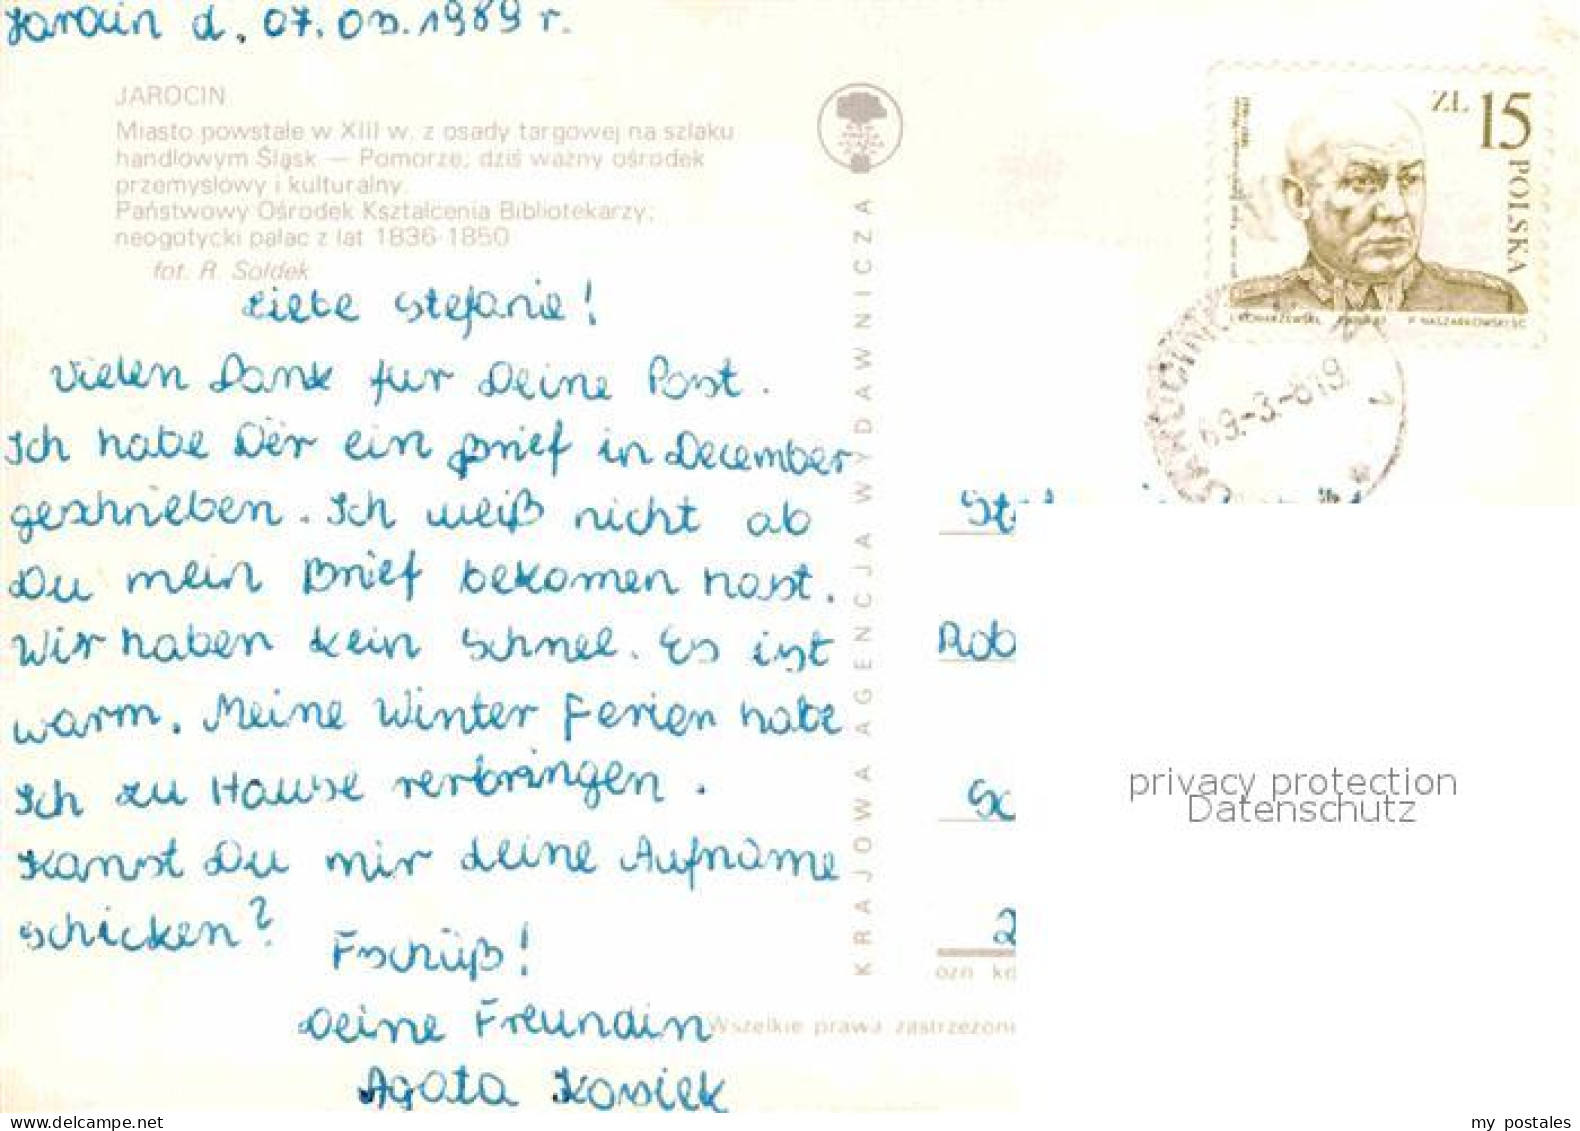 Jarocin d. 07.03.1989 r.
JAROCIN
Miasto powstałe w XIII w. z osady targowej na szlaku
handlowym Śląsk — Pomorze; dziś ważny ośrodek
przemysłowy i kulturalny.
Państwowy Ośrodek Kształcenia Bibliotekarzy;
neogotycki pałac z lat 1836-1850
fot. R. Sołdek
Liebe Stefanie!
Vielen Dank für Deine Post.
Ich habe Dir ein Brief in December
geschrieben. Ich weiß nicht ab
Du mein Brief bekomen hast.
Wir haben kein Schnel. Es ist
warm. Meine Winter Ferien habe
Ich zu Hause verbringen.
Kanst Du mir deine Aufname
schicken?
Tschüß!
Deine Freundin
Agata
KRAJOWA AGENCJA WYDAWNICZA
ZŁ 15
POLSKA
JAROCIN
Rob
Sc
2
ozn kd
Wszelkie prawa zastrzeżone
privacy protection
Datenschutz
my postales